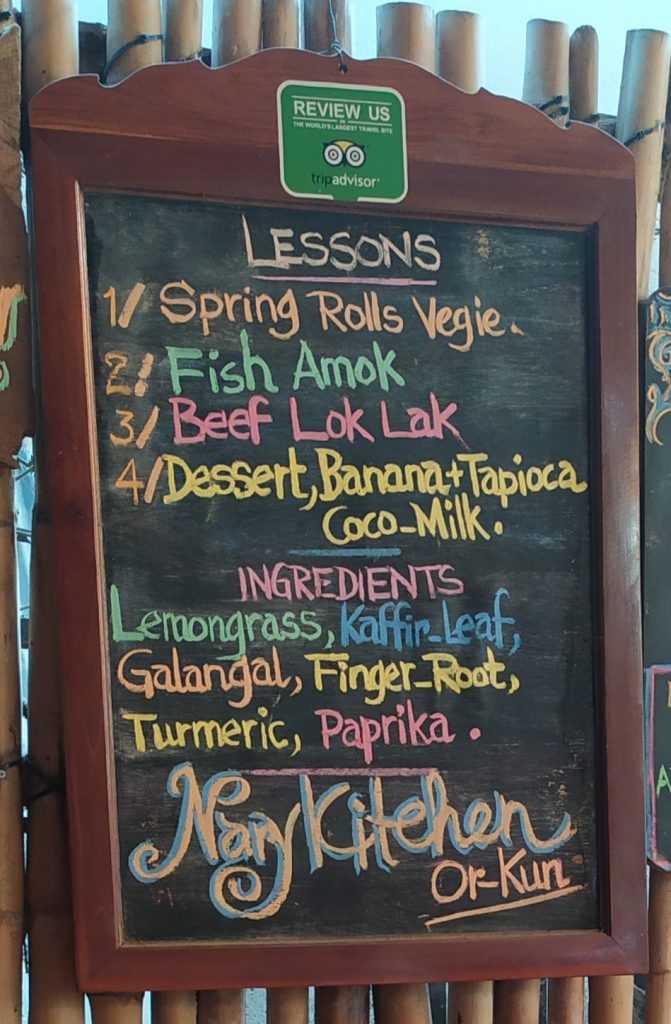 REVIEW US
ON
THE WORLD'S LARGEST TRAVEL SITE
tripadvisor®
LESSONS
1/ Spring Rolls Vegie.
2/ Fish Amok
3/ Beef Lok Lak
4/ Dessert, Banana+Tapioca
Coco-Milk.
INGREDIENTS
Lemongrass, Kaffir-Leaf,
Galangal, Finger-Root,
Turmeric, Paprika.
Nary Kitchen
Or-Kun